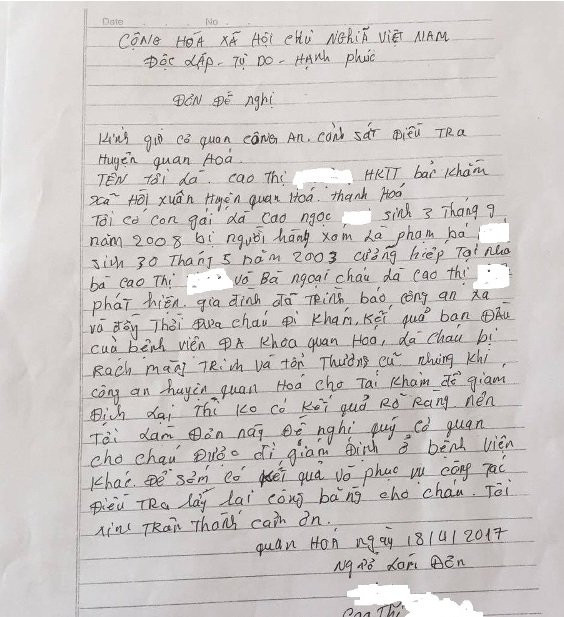 Date No
CỘNG HÓA XÃ HỘI CHỦ NGHĨA VIỆT NAM
Độc LẬP - TỰ DO - HẠNH phúc
ĐƠN ĐỀ Nghị
Kính gỉỏ cỏ quan CÔNG AN. cảnh sát Điều TRA
Huyện quan Hoá.
TÊN Tôi Là. cao Thị HKTT bản Khằm
xã Hồi xuân Huyện quan Hoá. Thanh Hoá
Tôi có con gái Là cao ngọc sinh 3 Tháng 9
năm 2008 bị người hàng xóm Là phạm bá
sinh 30 Tháng 5 năm 2003 cưỡng hiếp Tại nhà
bà cao Thị và Bà ngoại cháu Là cao thị
phát hiện. gia đình đã Trình báo công an xã
và đồng Thời Đưa cháu Đi Khám, Kết quả ban Đầu
của bệnh viện ĐA Khoa quan Hoá, Là cháu bị
Rách màng TRinh và tổn Thương cũ nhưng Khi
công an huyện quan Hoá cho Tái Khám để giám
Định Lại Thì Ko có Kết quả Rõ Ràng nên
Tôi Làm Đơn này Đề nghị quý cỏ quan
cho cháu Được đi giám Định ở bệnh viện
Khác. Để sớm có Kết quả và phục vụ công Tác
Điều TRa lấy lại công bằng cho cháu. Tôi
xinc TRân Thành cảm ơn.
quan HOÁ ngày 18/4/2017
Người Làm Đơn
Cao Thị